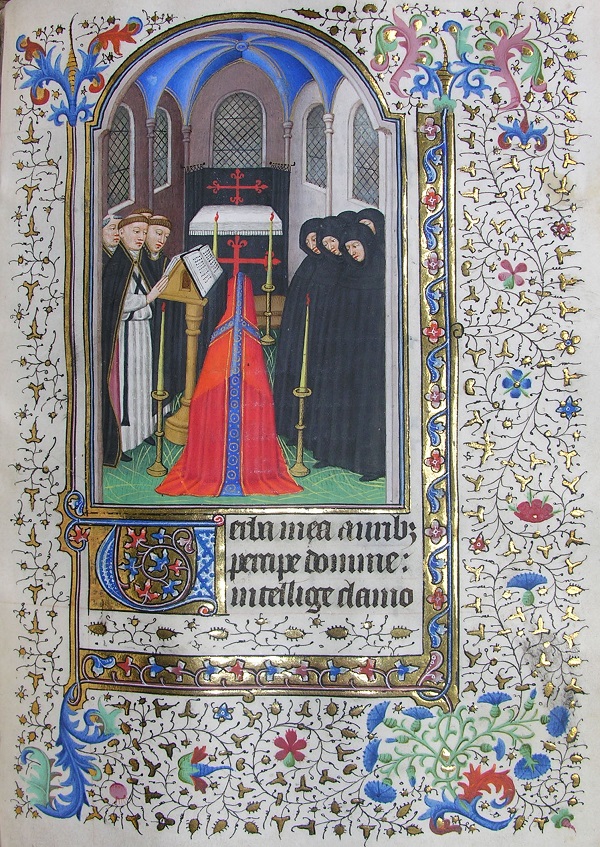 Verba mea aurib;
percipe domine:
intellige clamo